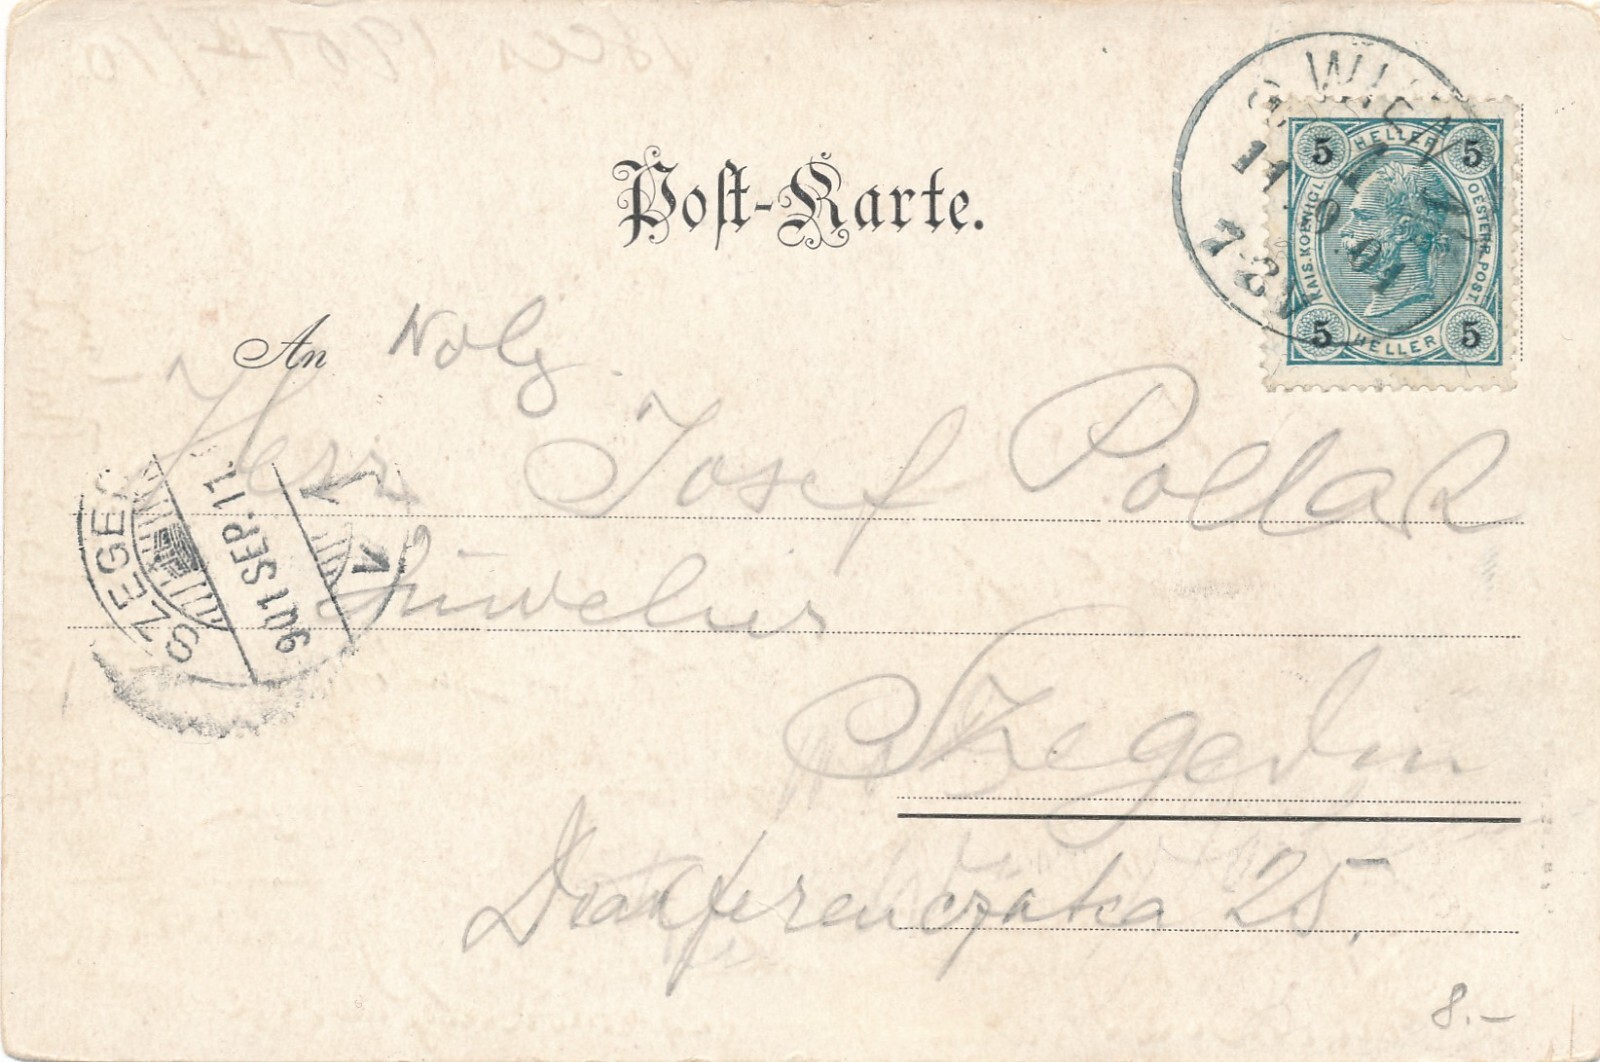 Post-Karte.
WIEN
11 9 01
7-8V
5 HELLER 5
KAIS. KOENIGL. OESTERR. POST.
5 HELLER 5
An Wolg.
Herr Josef Pollak
Juwelier
SZEGED
901 SEP. 11
Szegedin
Deakferenczutca 25.
8.-